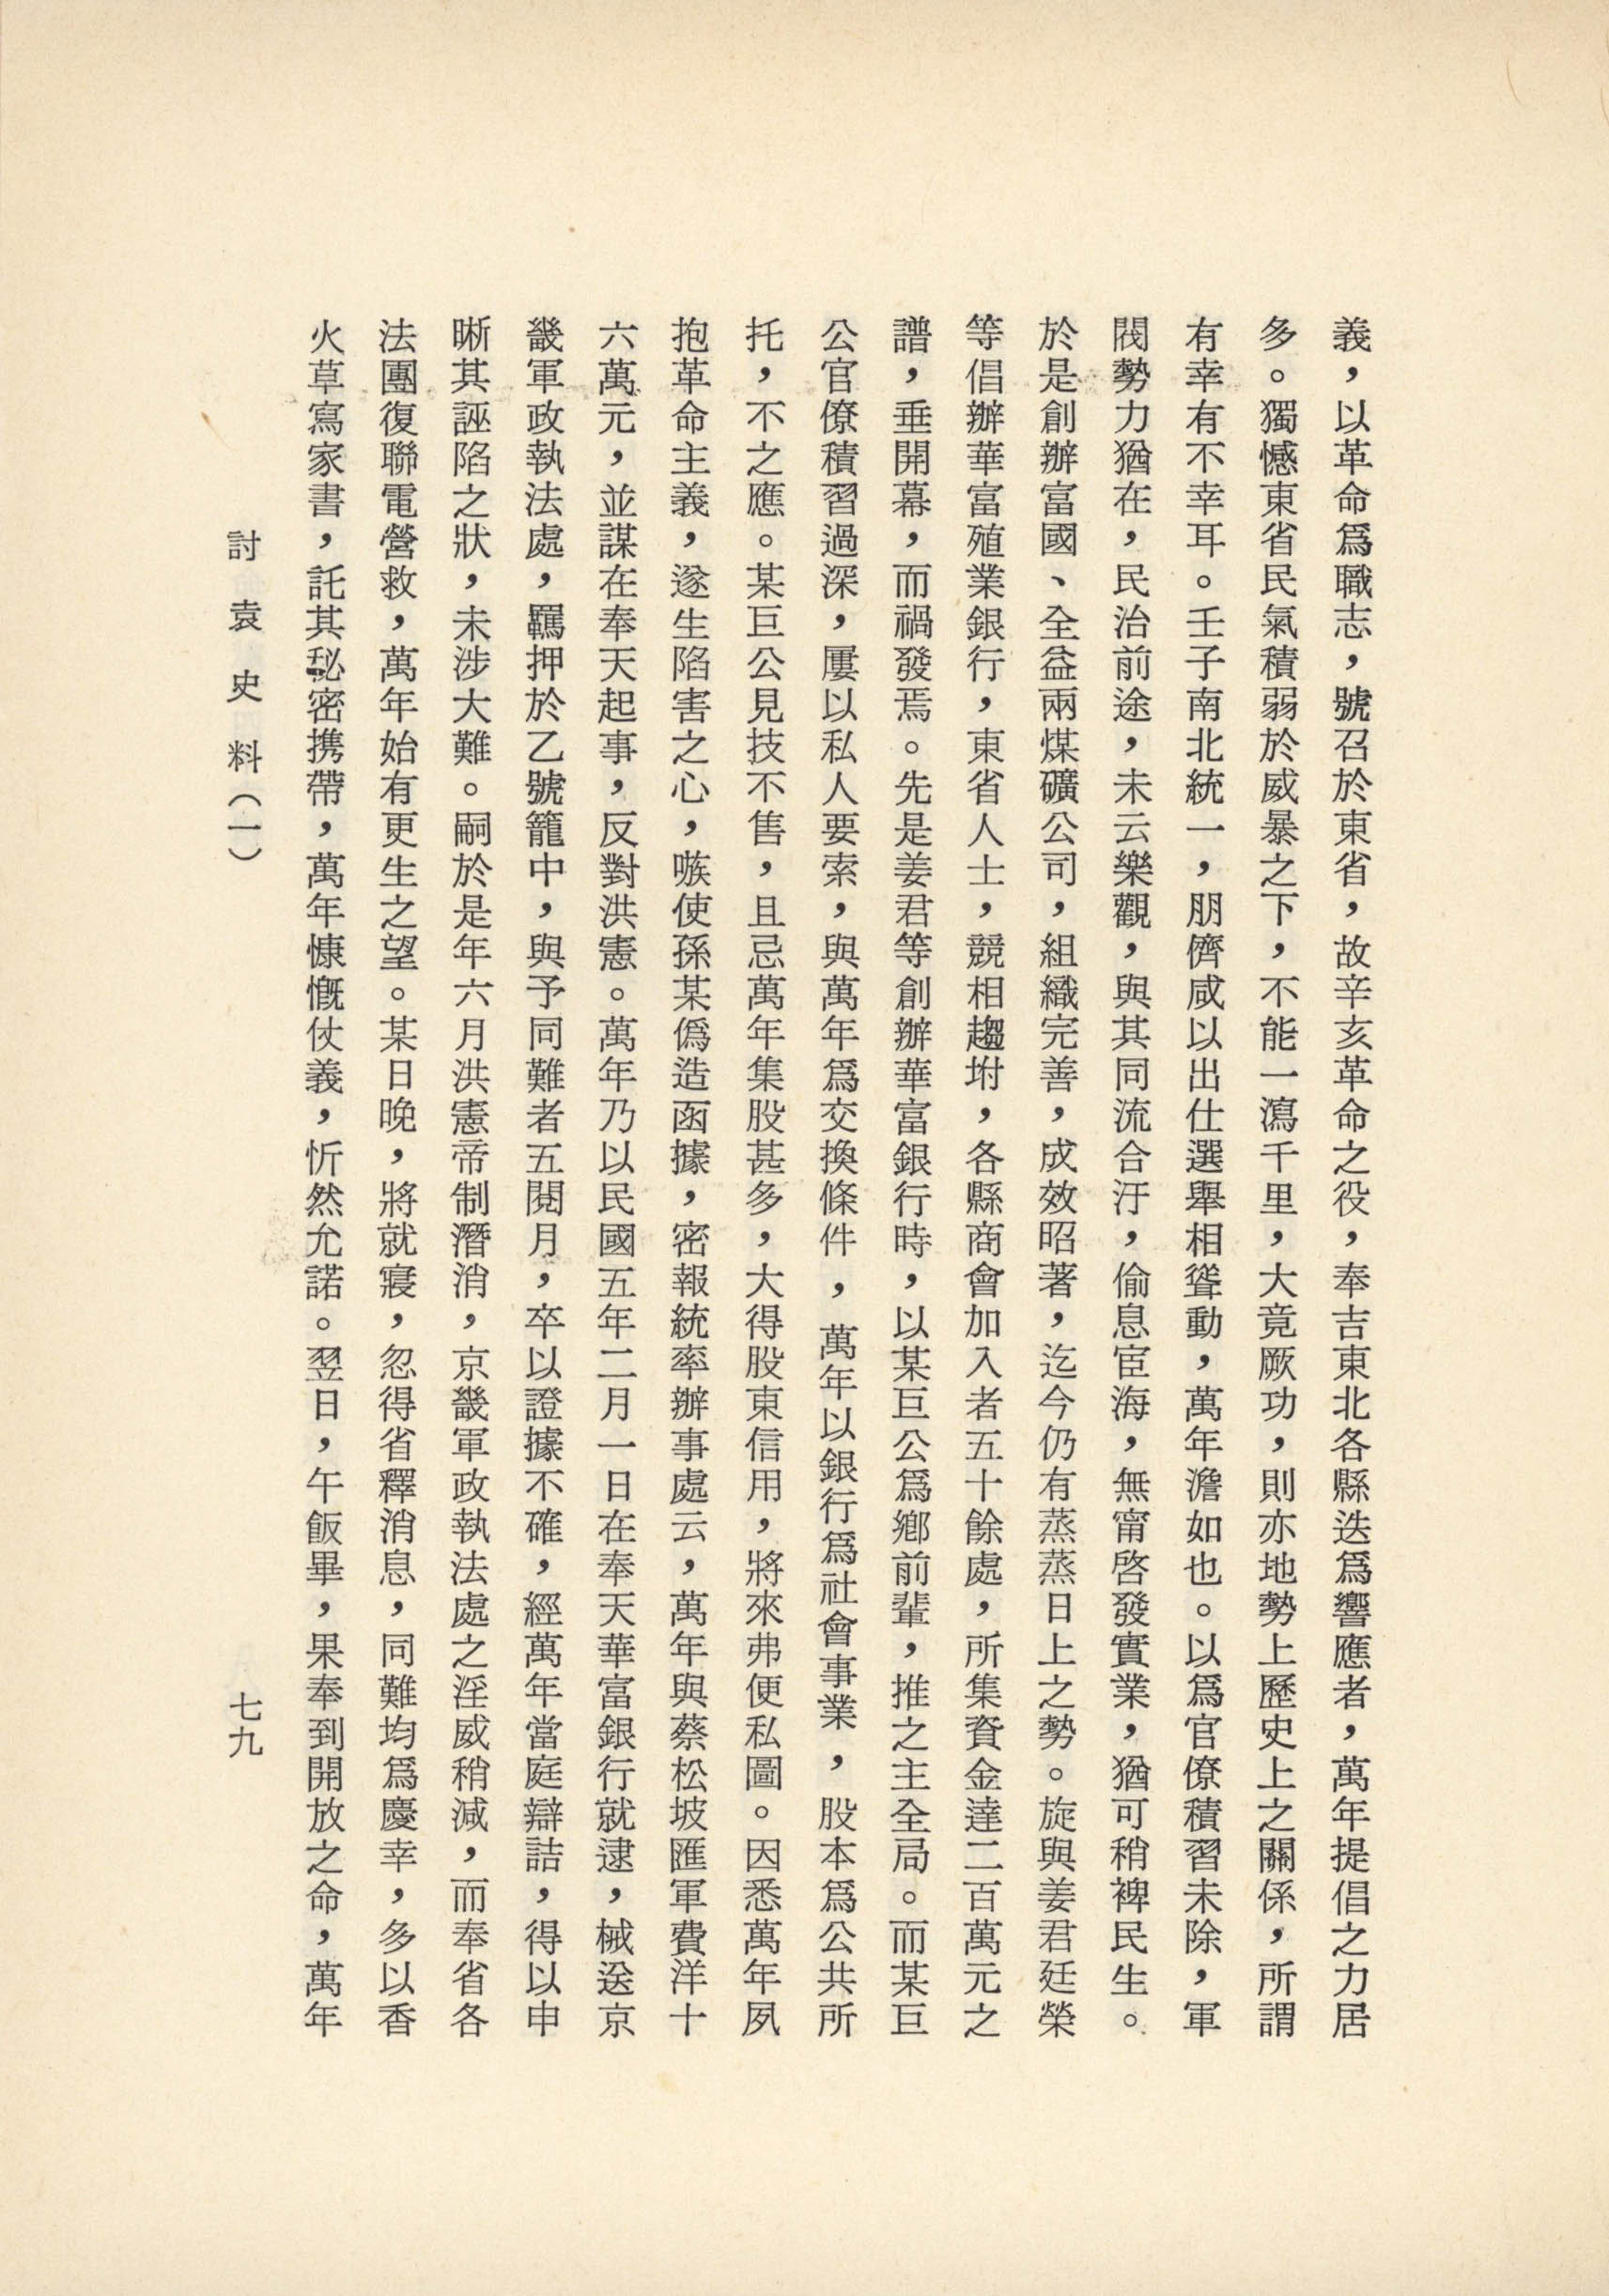 義，以革命爲職志，號召於東省，故辛亥革命之役，奉吉東北各縣迭爲響應者，萬年提倡之力居
多。獨憾東省民氣積弱於威暴之下，不能一瀉千里，大竟厥功，則亦地勢上歷史上之關係，所謂
有幸有不幸耳。壬子南北統一，朋儕咸以出仕選舉相聳動，萬年澹如也。以爲官僚積習未除，軍
閥勢力猶在，民治前途，未云樂觀，與其同流合汙，偷息宦海，無甯啓發實業，猶可稍裨民生。
於是創辦富國、全益兩煤礦公司，組織完善，成效昭著，迄今仍有蒸蒸日上之勢。旋與姜君廷榮
等倡辦華富殖業銀行，東省人士，競相趨坿，各縣商會加入者五十餘處，所集資金達二百萬元之
譜，垂開幕，而禍發焉。先是姜君等創辦華富銀行時，以某巨公爲鄉前輩，推之主全局。而某巨
公官僚積習過深，屢以私人要索，與萬年爲交換條件，萬年以銀行爲社會事業，股本爲公共所
托，不之應。某巨公見技不售，且忌萬年集股甚多，大得股東信用，將來弗便私圖。因悉萬年夙
抱革命主義，遂生陷害之心，嗾使孫某僞造函據，密報統率辦事處云，萬年與蔡松坡匯軍費洋十
六萬元，並謀在奉天起事，反對洪憲。萬年乃以民國五年二月一日在奉天華富銀行就逮，械送京
畿軍政執法處，羈押於乙號籠中，與予同難者五閱月，卒以證據不確，經萬年當庭辯詰，得以申
晰其誣陷之狀，未涉大難。嗣於是年六月洪憲帝制潛消，京畿軍政執法處之淫威稍減，而奉省各
法團復聯電營救，萬年始有更生之望。某日晚，將就寢，忽得省釋消息，同難均爲慶幸，多以香
火草寫家書，託其秘密携帶，萬年慷慨仗義，忻然允諾。翌日，午飯畢，果奉到開放之命，萬年
討袁史料（一）
七九